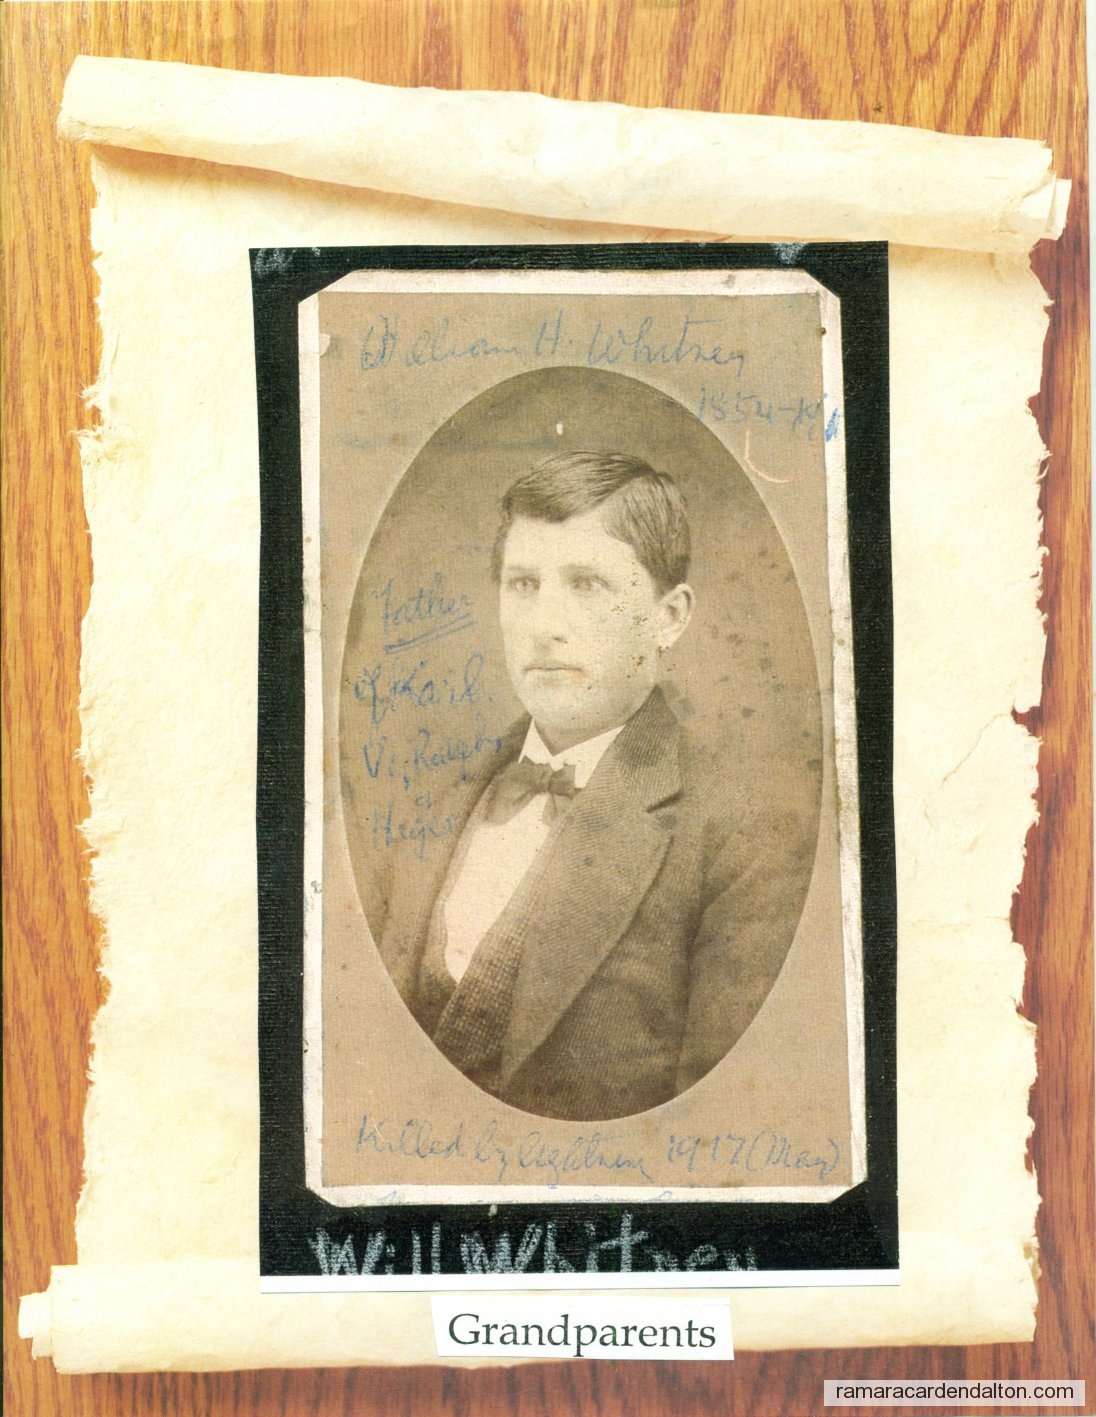 William H. Whitney
1854-19
Father
of Karl,
Vi, Ralph,
&
Killed by lightning 1917 (May)
Will Whitney
Grandparents
ramaracardendalton.com